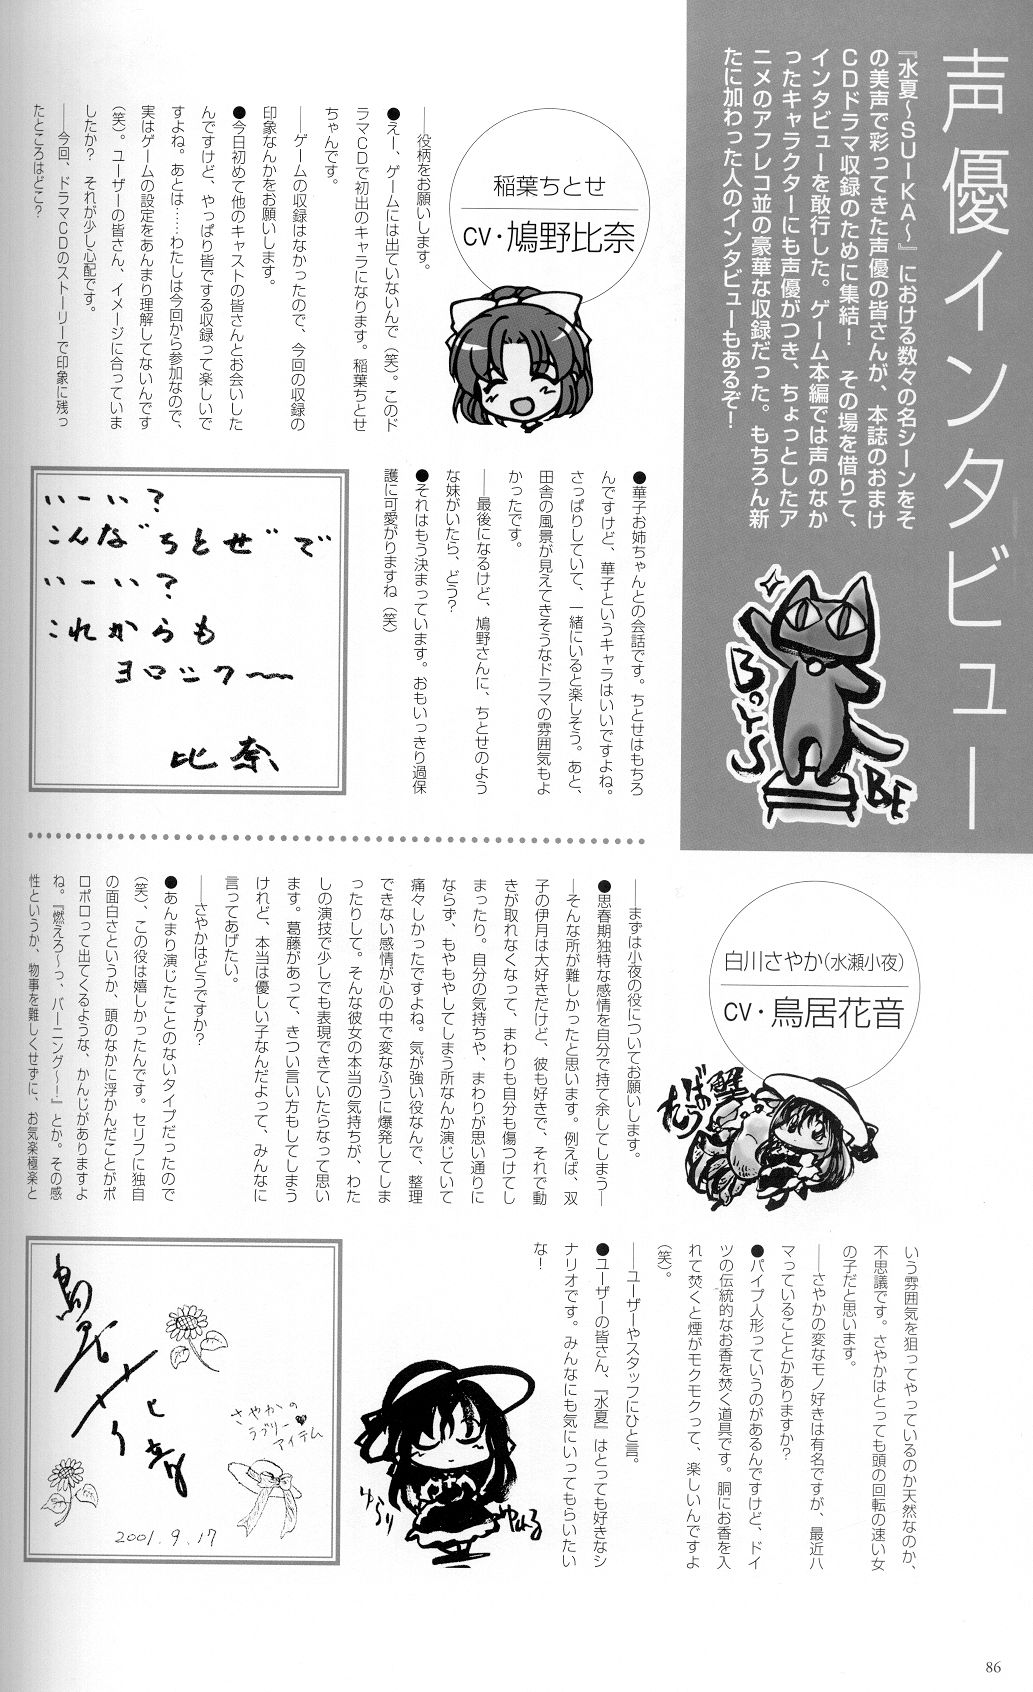 声優インタビュー
『水夏～SUIKA～』における数々の名シーンをそ
の美声で彩ってきた声優の皆さんが、本誌のおまけ
CDドラマ収録のために集結！　その場を借りて、
インタビューを敢行した。ゲーム本編では声のなか
ったキャラクターにも声優がつき、ちょっとしたア
ニメのアフレコ並の豪華な収録だった。もちろん新
たに加わった人のインタビューもあるぞ！
BOYS
BE
稲葉ちとせ
CV・鳩野比奈
――役柄をお願いします。
●えー、ゲームには出ていないんで（笑）。このド
ラマCDで初出のキャラになります。稲葉ちとせ
ちゃんです。
――ゲームの収録はなかったので、今回の収録の
印象なんかをお願いします。
●今日初めて他のキャストの皆さんとお会いした
んですけど、やっぱり皆でする収録って楽しいで
すよね。あとは……わたしは今回から参加なので、
実はゲームの設定をあんまり理解してないんです
（笑）。ユーザーの皆さん、イメージに合っていま
したか？　それが少し心配です。
――今回、ドラマCDのストーリーで印象に残っ
たところはどこ？
●華子お姉ちゃんとの会話です。ちとせはもちろ
んですけど、華子というキャラはいいですよね。
さっぱりしていて、一緒にいると楽しそう。あと、
田舎の風景が見えてきそうなドラマの雰囲気もよ
かったです。
――最後になるけど、鳩野さんに、ちとせのよう
な妹がいたら、どう？
●それはもう決まっています。おもいっきり過保
護に可愛がりますね（笑）
いーい？
こんな"ちとせ"で
いーい？
これからも
ヨロシク～
比奈
白川さやか（水瀬小夜）
CV・鳥居花音
蟹
ばのうた
――まずは小夜の役についてお願いします。
●思春期独特な感情を自分で持て余してしまう―
―そんな所が難しかったと思います。例えば、双
子の伊月は大好きだけど、彼も好きで、それで動
きが取れなくなって、まわりも自分も傷つけてし
まったり。自分の気持ちや、まわりが思い通りに
ならず、もやもやしてしまう所なんか演じていて
痛々しかったですよね。気が強い役なんで、整理
できない感情が心の中で変なふうに爆発してしま
ったりして。そんな彼女の本当の気持ちが、わた
しの演技で少しでも表現できていたらなって思い
ます。葛藤があって、きつい言い方もしてしまう
けれど、本当は優しい子なんだよって、みんなに
言ってあげたい。
――さやかはどうですか？
●あんまり演じたことのないタイプだったので
（笑）、この役は嬉しかったんです。セリフに独自
の面白さというか、頭のなかに浮かんだことがポ
ロポロって出てくるような、かんじがありますよ
ね。『燃えろ～っ、バーニング～！』とか。その感
性というか、物事を難しくせずに、お気楽極楽と
いう雰囲気を狙ってやっているのか天然なのか、
不思議です。さやかはとっても頭の回転の速い女
の子だと思います。
――さやかの変なモノ好きは有名ですが、最近ハ
マっていることとかありますか？
●パイプ人形っていうのがあるんですけど、ドイ
ツの伝統的なお香を焚く道具です。胴にお香を入
れて焚くと煙がモクモクって、楽しいんですよ
（笑）。
――ユーザーやスタッフにひと言。
●ユーザーの皆さん、『水夏』はとっても好きなシ
ナリオです。みんなにも気にいってもらいたい
な！
ゆらり
さやかの
ラブリー
アイテム
2001.9.17
86